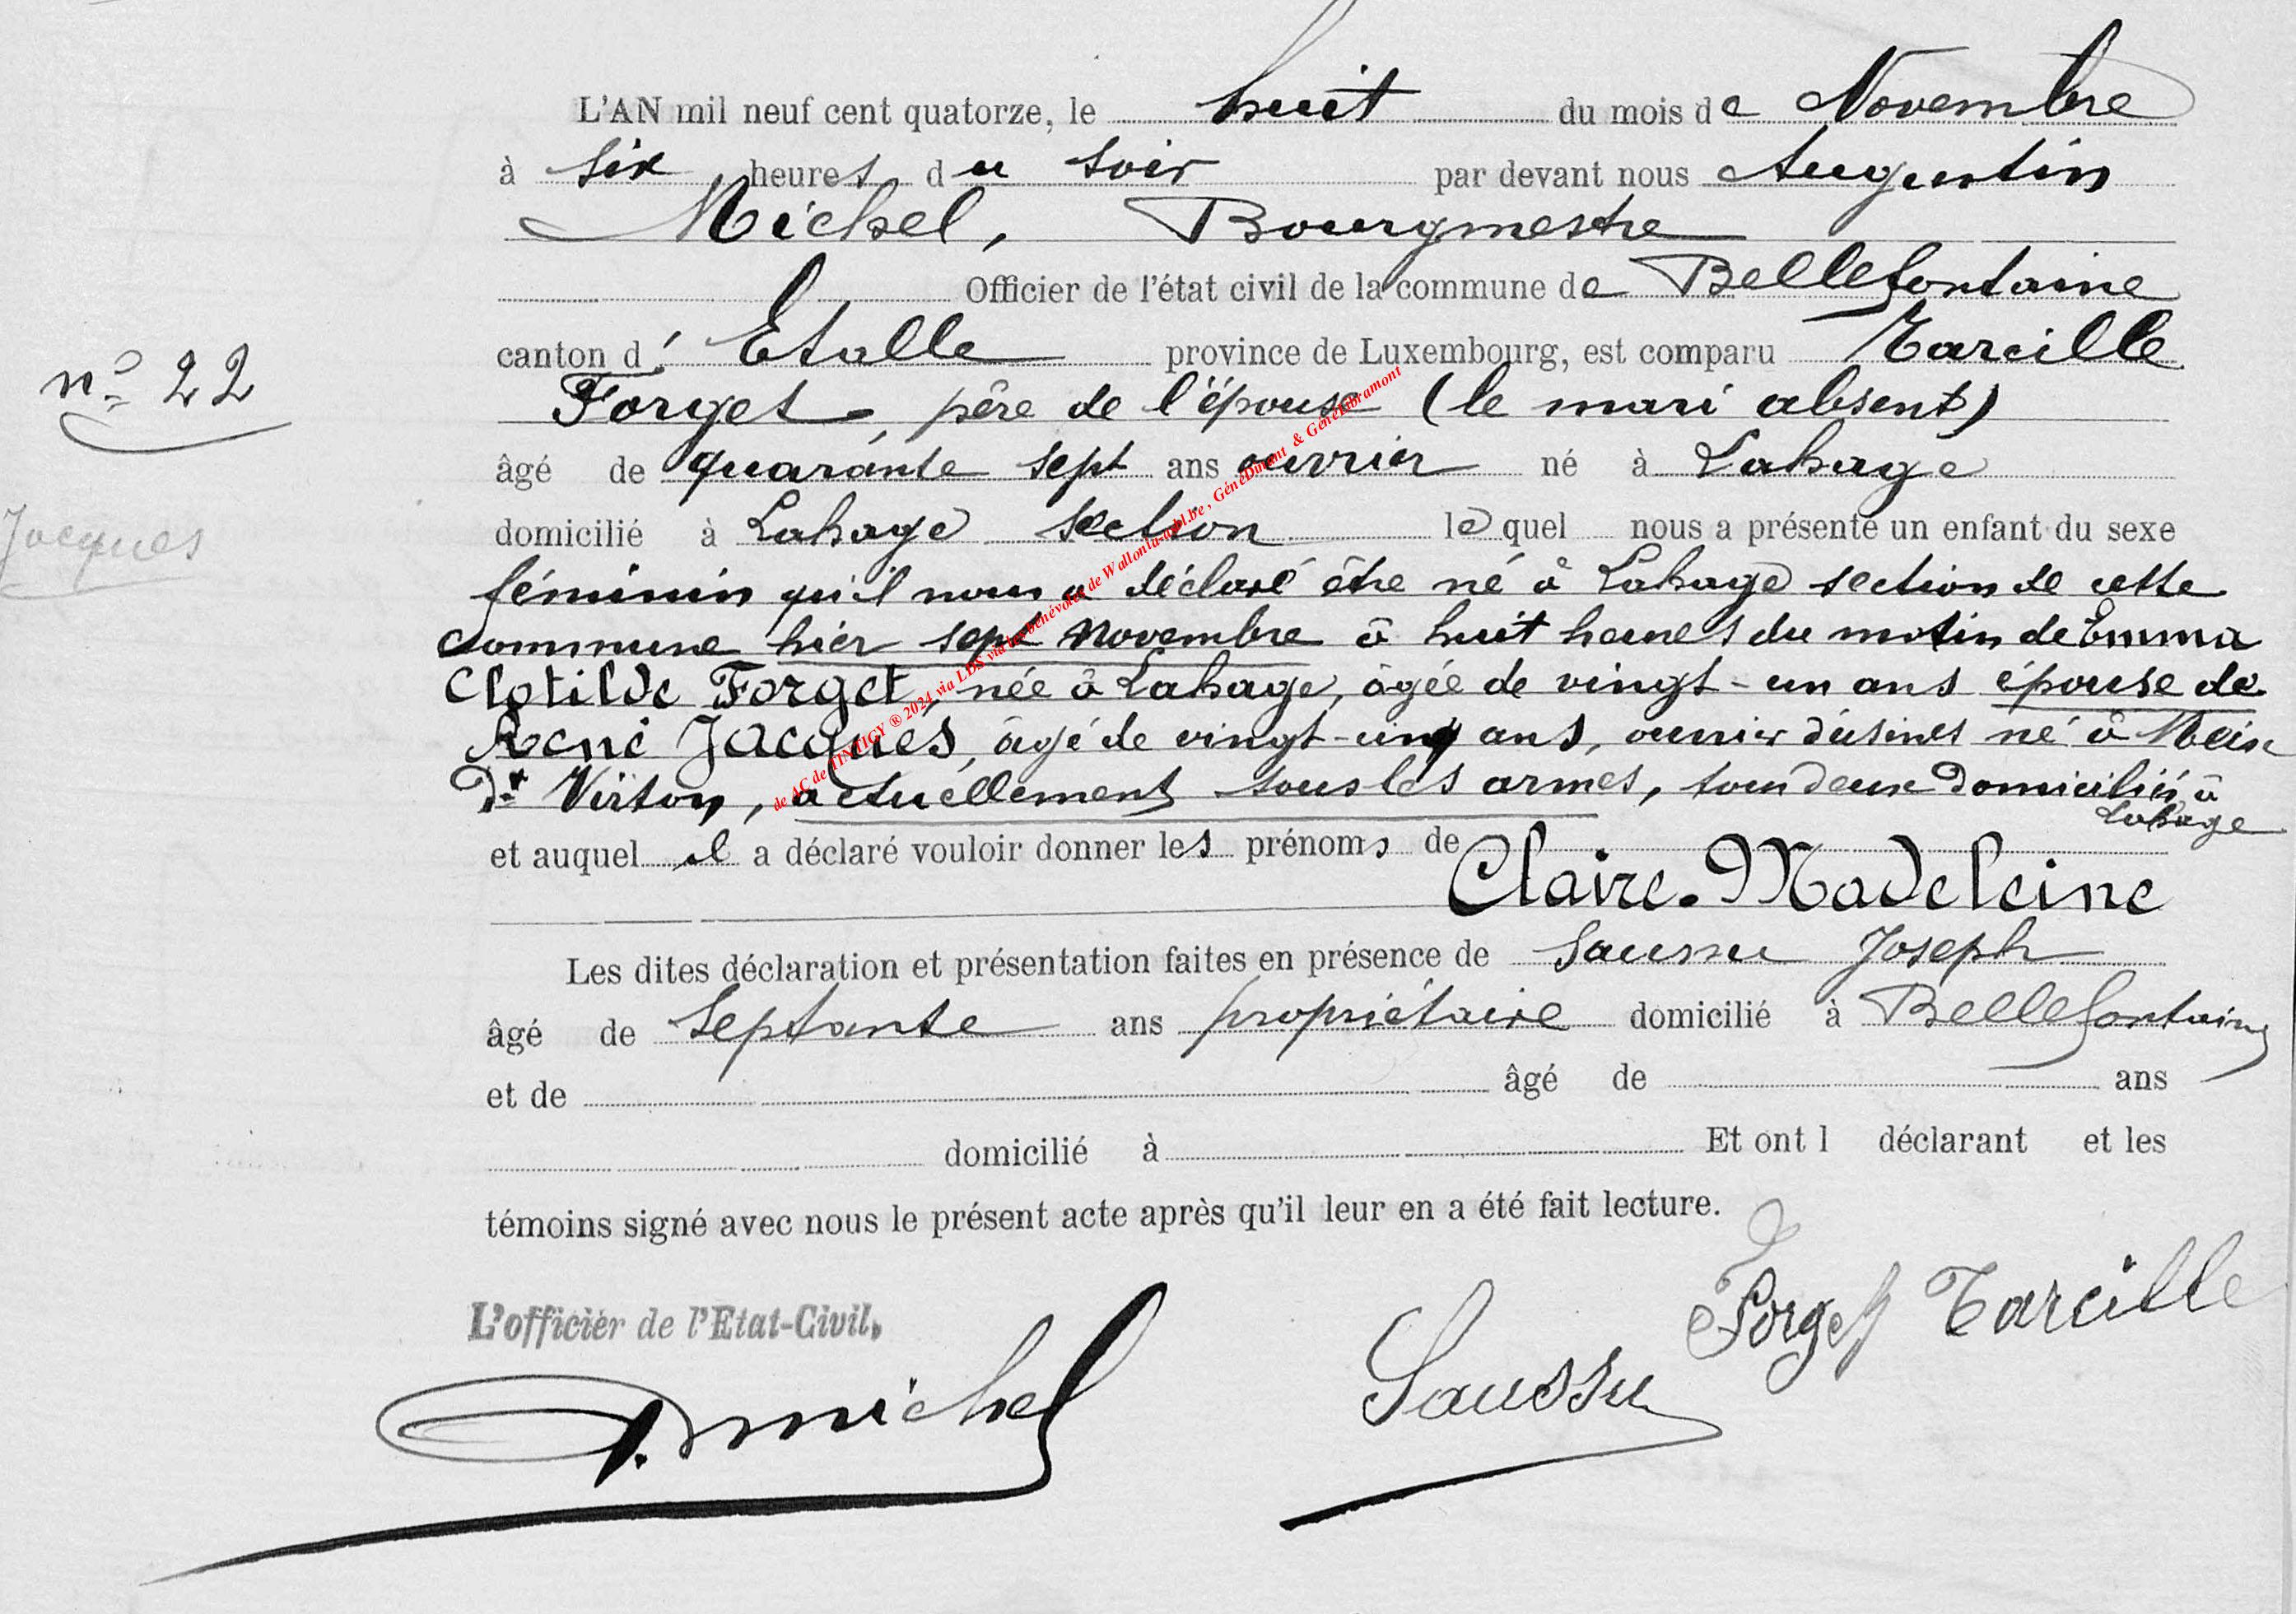 L'AN mil neuf cent quatorze, le huit du mois de Novembre
à six heures du soir par devant nous Augustin
Michel, Bourgmestre
Officier de l'état civil de la commune de Bellefontaine
canton d'Etalle province de Luxembourg, est comparu Tarcille
n° 22
Forget, père de l'épouse (le mari absent)
âgé de quarante sept ans ouvrier né à Lahage
Jacques
domicilié à Lahage section lequel nous a présenté un enfant du sexe
féminin qu'il nous a déclaré être né à Lahage section de cette
commune hier sept Novembre à huit heures du matin de Emma
Clotilde Forget, née à Lahage, âgée de vingt-un ans épouse de
René Jacques, âgé de vingt-cinq ans, ouvrier d'usines né à Meix
dt Virton, actuellement sous les armes, tous deux domiciliés à
Lahage
et auquel il a déclaré vouloir donner les prénoms de
Claire-Madeleine
Les dites déclaration et présentation faites en présence de Saussu Joseph
âgé de septante ans propriétaire domicilié à Bellefontaine
et de âgé de ans
domicilié à Et ont l déclarant et les
témoins signé avec nous le présent acte après qu'il leur en a été fait lecture.
L'officier de l'Etat-Civil,
Forget Tarcille
A. Michel
Saussu
de AC de TINTIGY ® 2024 via LDS via les bénévoles de Wallonia-asbl.be, GénéDinant & GénéLibramont